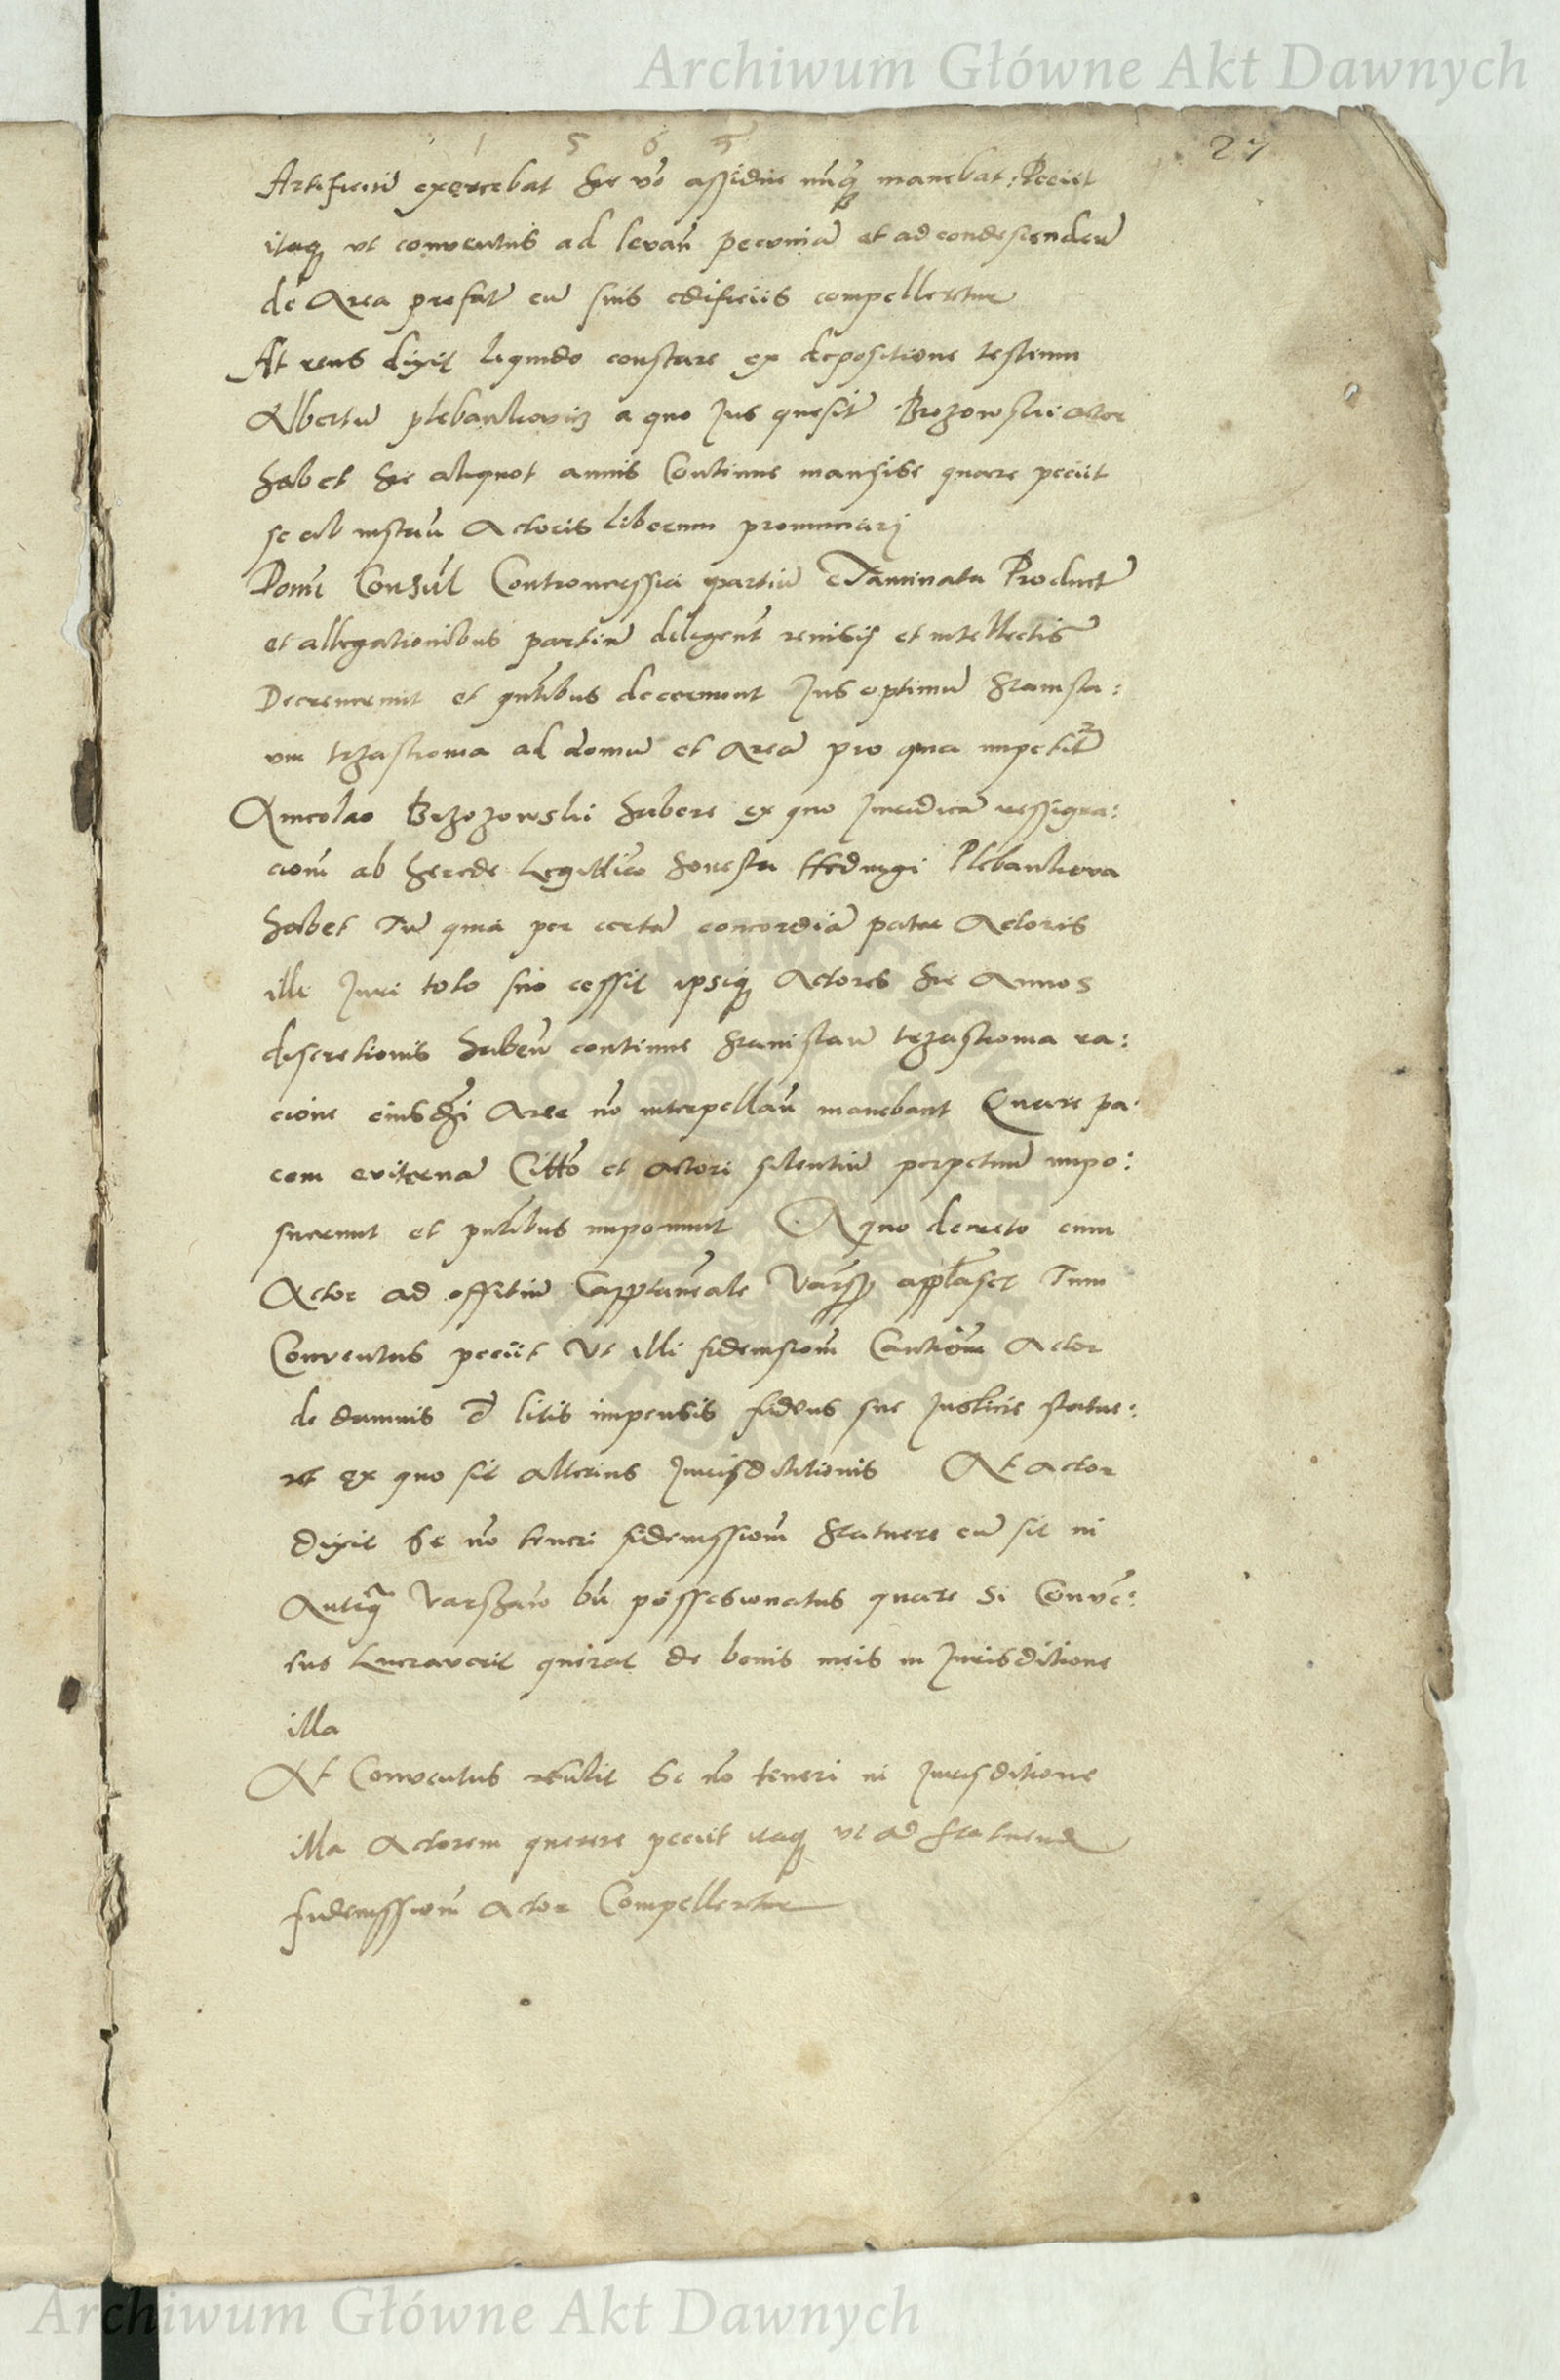 Archiwum Główne Akt Dawnych
1565
27
Artificiũ exercebat hic vo assidue nũq manebat: Peciit
itaq ut conventus ad levañ pecuniã et ad condescendeũ
de Area prefat cũ suis edificiis compelleretur
At reus dixit liquido constare ex depositione testium
Albertũ plebankovicz a quo Jus quesit Brozowski actor
habet hic aliquot annis Continue mansisse quare peciit
se ab Actoris liberum pronunciarj
Domi Consul partiũ Examinata Product
et allegationibus partiũ deligent revisis et intellectis
Decreverunt et pntibus decernunt Jus optimũ Stanisla:
um trzaskoma ad domũ et Areã pro qua impetitr
A nicolao Brzozowski habere ex quo Juridicã ressigna:
ciom ab herede Legittimo honesta Hedvigi Plebankova
habet Tũ quia per certã concordiã pater Actoris
ille Juri toto suo cessit ipsiq Actores hic Annos
discretionis habeñ continue Stanislaũ trzaskoma ra:
cione Aree no interpellañ manebant Quare pa:
cem eviternã Citto et actori silentiũ perpetuũ impo:
suerunt et pntibus imponunt A quo decreto cum
Actor ad offitiũ Capptaneale Varsz applasset Tum
Conventus peciit Ut illi fideiusiom Cautiom Actor
de damnis et litis impensis fideius sue Justicie statue:
ret ex quo sit alterius Jurisditionis At actor
dixit Se no teneri fideiussiom statuere cũ sit in
Antiq Varschav bñ possesionatus quare si Conve:
tus Lucraverit querat de bonis meis in Jurisditione
illa
At Conventus retulit Se no teneri in Jurisditione
illa Actorem querere peciit itaq ut ad statuend
fideiussiom Actor Compelleretur
Archiwum Główne Akt Dawnych